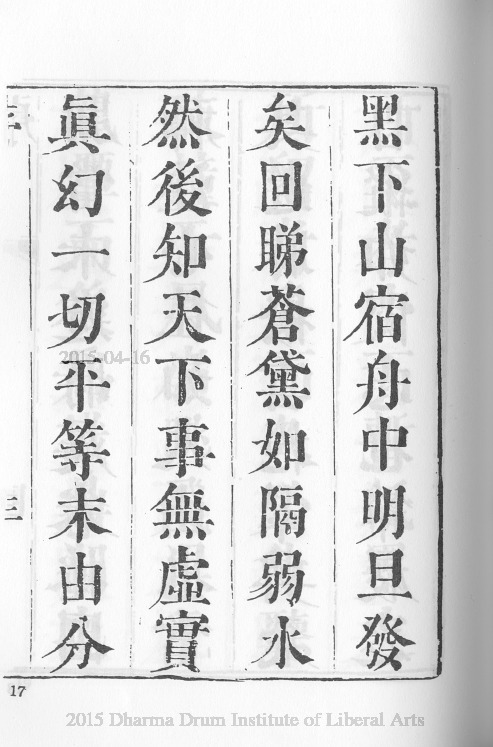 黑下山宿舟中明旦發
矣回睇蒼黛如隔弱水
然後知天下事無虛實
眞幻一切平等末由分
三
17
2015-04-16
2015 Dharma Drum Institute of Liberal Arts